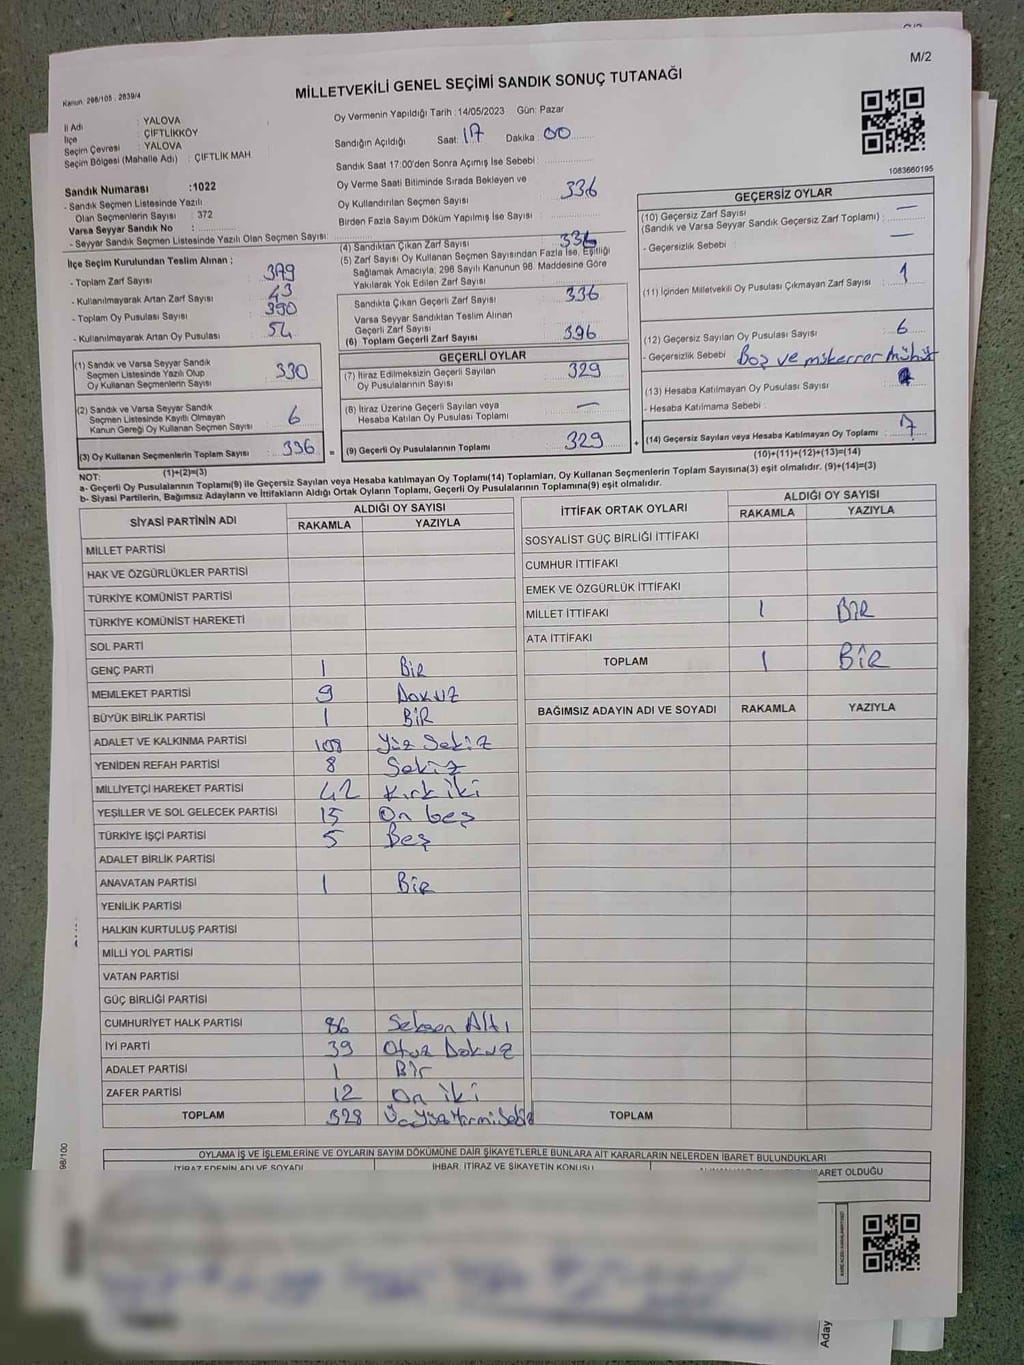 M/2
Kanun: 298/105, 2839/4
MİLLETVEKİLİ GENEL SEÇİMİ SANDIK SONUÇ TUTANAĞI
İl Adı : YALOVA
İlçe : ÇİFTLİKKÖY
Seçim Çevresi : YALOVA
Seçim Bölgesi (Mahalle Adı) : ÇİFTLİK MAH
Sandık Numarası :1022
- Sandık Seçmen Listesinde Yazılı
Olan Seçmenlerin Sayısı : 372
Varsa Seyyar Sandık No :
- Seyyar Sandık Seçmen Listesinde Yazılı Olan Seçmen Sayısı:
Oy Vermenin Yapıldığı Tarih : 14/05/2023 Gün: Pazar
Sandığın Açıldığı Saat: 17 Dakika : 00
Sandık Saat 17:00'den Sonra Açımış İse Sebebi :
Oy Verme Saati Bitiminde Sırada Bekleyen ve
Oy Kullandırılan Seçmen Sayısı : 336
Birden Fazla Sayım Döküm Yapılmış İse Sayısı :
1083660195
İlçe Seçim Kurulundan Teslim Alınan ;
- Toplam Zarf Sayısı : 379
- Kullanılmayarak Artan Zarf Sayısı : 43
- Toplam Oy Pusulası Sayısı : 390
- Kullanılmayarak Artan Oy Pusulası : 54
(1) Sandık ve Varsa Seyyar Sandık
Seçmen Listesinde Yazılı Olup
Oy Kullanan Seçmenlerin Sayısı : 330
(2) Sandık ve Varsa Seyyar Sandık
Seçmen Listesinde Kayıtlı Olmayan
Kanun Gereği Oy Kullanan Seçmen Sayısı : 6
(3) Oy Kullanan Seçmenlerin Toplam Sayısı : 336
(1)+(2)=(3)
(4) Sandıktan Çıkan Zarf Sayısı : 336
(5) Zarf Sayısı Oy Kullanan Seçmen Sayısından Fazla İse, Eşitliği
Sağlamak Amacıyla; 298 Sayılı Kanunun 98. Maddesine Göre
Yakılarak Yok Edilen Zarf Sayısı :
Sandıkta Çıkan Geçerli Zarf Sayısı : 336
Varsa Seyyar Sandıktan Teslim Alınan
Geçerli Zarf Sayısı :
(6) Toplam Geçerli Zarf Sayısı : 336
GEÇERLİ OYLAR
(7) İtiraz Edilmeksizin Geçerli Sayılan
Oy Pusulalarının Sayısı : 329
(8) İtiraz Üzerine Geçerli Sayılan veya
Hesaba Katılan Oy Pusulası Toplamı : —
(9) Geçerli Oy Pusulalarının Toplamı : 329
GEÇERSİZ OYLAR
(10) Geçersiz Zarf Sayısı —
(Sandık ve Varsa Seyyar Sandık Geçersiz Zarf Toplamı) :
- Geçersizlik Sebebi : —
(11) İçinden Milletvekili Oy Pusulası Çıkmayan Zarf Sayısı : 1
(12) Geçersiz Sayılan Oy Pusulası Sayısı : 6
- Geçersizlik Sebebi : Boş ve mükerrer mühür
(13) Hesaba Katılmayan Oy Pusulası Sayısı :
- Hesaba Katılmama Sebebi :
(14) Geçersiz Sayılan veya Hesaba Katılmayan Oy Toplamı : 7
(10)+(11)+(12)+(13)=(14)
NOT:
a- Geçerli Oy Pusulalarının Toplamı(9) ile Geçersiz Sayılan veya Hesaba katılmayan Oy Toplamı(14) Toplamları, Oy Kullanan Seçmenlerin Toplam Sayısına(3) eşit olmalıdır. (9)+(14)=(3)
b- Siyasi Partilerin, Bağımsız Adayların ve İttifakların Aldığı Ortak Oyların Toplamı, Geçerli Oy Pusulalarının Toplamına(9) eşit olmalıdır.
SİYASİ PARTİNİN ADI ALDIĞI OY SAYISI
RAKAMLA YAZIYLA
MİLLET PARTİSİ
HAK VE ÖZGÜRLÜKLER PARTİSİ
TÜRKİYE KOMÜNİST PARTİSİ
TÜRKİYE KOMÜNİST HAREKETİ
SOL PARTİ
GENÇ PARTİ 1 Bir
MEMLEKET PARTİSİ 9 Dokuz
BÜYÜK BİRLİK PARTİSİ 1 BİR
ADALET VE KALKINMA PARTİSİ 108 Yüz Sekiz
YENİDEN REFAH PARTİSİ 8 Sekiz
MİLLİYETÇİ HAREKET PARTİSİ 42 Kırk iki
YEŞİLLER VE SOL GELECEK PARTİSİ 15 On beş
TÜRKİYE İŞÇİ PARTİSİ 5 Beş
ADALET BİRLİK PARTİSİ
ANAVATAN PARTİSİ 1 Bir
YENİLİK PARTİSİ
HALKIN KURTULUŞ PARTİSİ
MİLLİ YOL PARTİSİ
VATAN PARTİSİ
GÜÇ BİRLİĞİ PARTİSİ
CUMHURİYET HALK PARTİSİ 86 Seksen Altı
İYİ PARTİ 39 Otuz Dokuz
ADALET PARTİSİ 1 Bir
ZAFER PARTİSİ 12 On iki
TOPLAM 328 Üç Yüz Yirmi Sekiz
İTTİFAK ORTAK OYLARI ALDIĞI OY SAYISI
RAKAMLA YAZIYLA
SOSYALİST GÜÇ BİRLİĞİ İTTİFAKI
CUMHUR İTTİFAKI
EMEK VE ÖZGÜRLÜK İTTİFAKI
MİLLET İTTİFAKI 1 BİR
ATA İTTİFAKI
TOPLAM 1 BİR
BAĞIMSIZ ADAYIN ADI VE SOYADI RAKAMLA YAZIYLA
TOPLAM
OYLAMA İŞ VE İŞLEMLERİNE VE OYLARIN SAYIM DÖKÜMÜNE DAİR ŞİKAYETLERLE BUNLARA AİT KARARLARIN NELERDEN İBARET BULUNDUKLARI
İTİRAZ EDENİN ADI VE SOYADI İHBAR, İTİRAZ VE ŞİKAYETİN KONUSU İBARET OLDUĞU
98/100
Aday